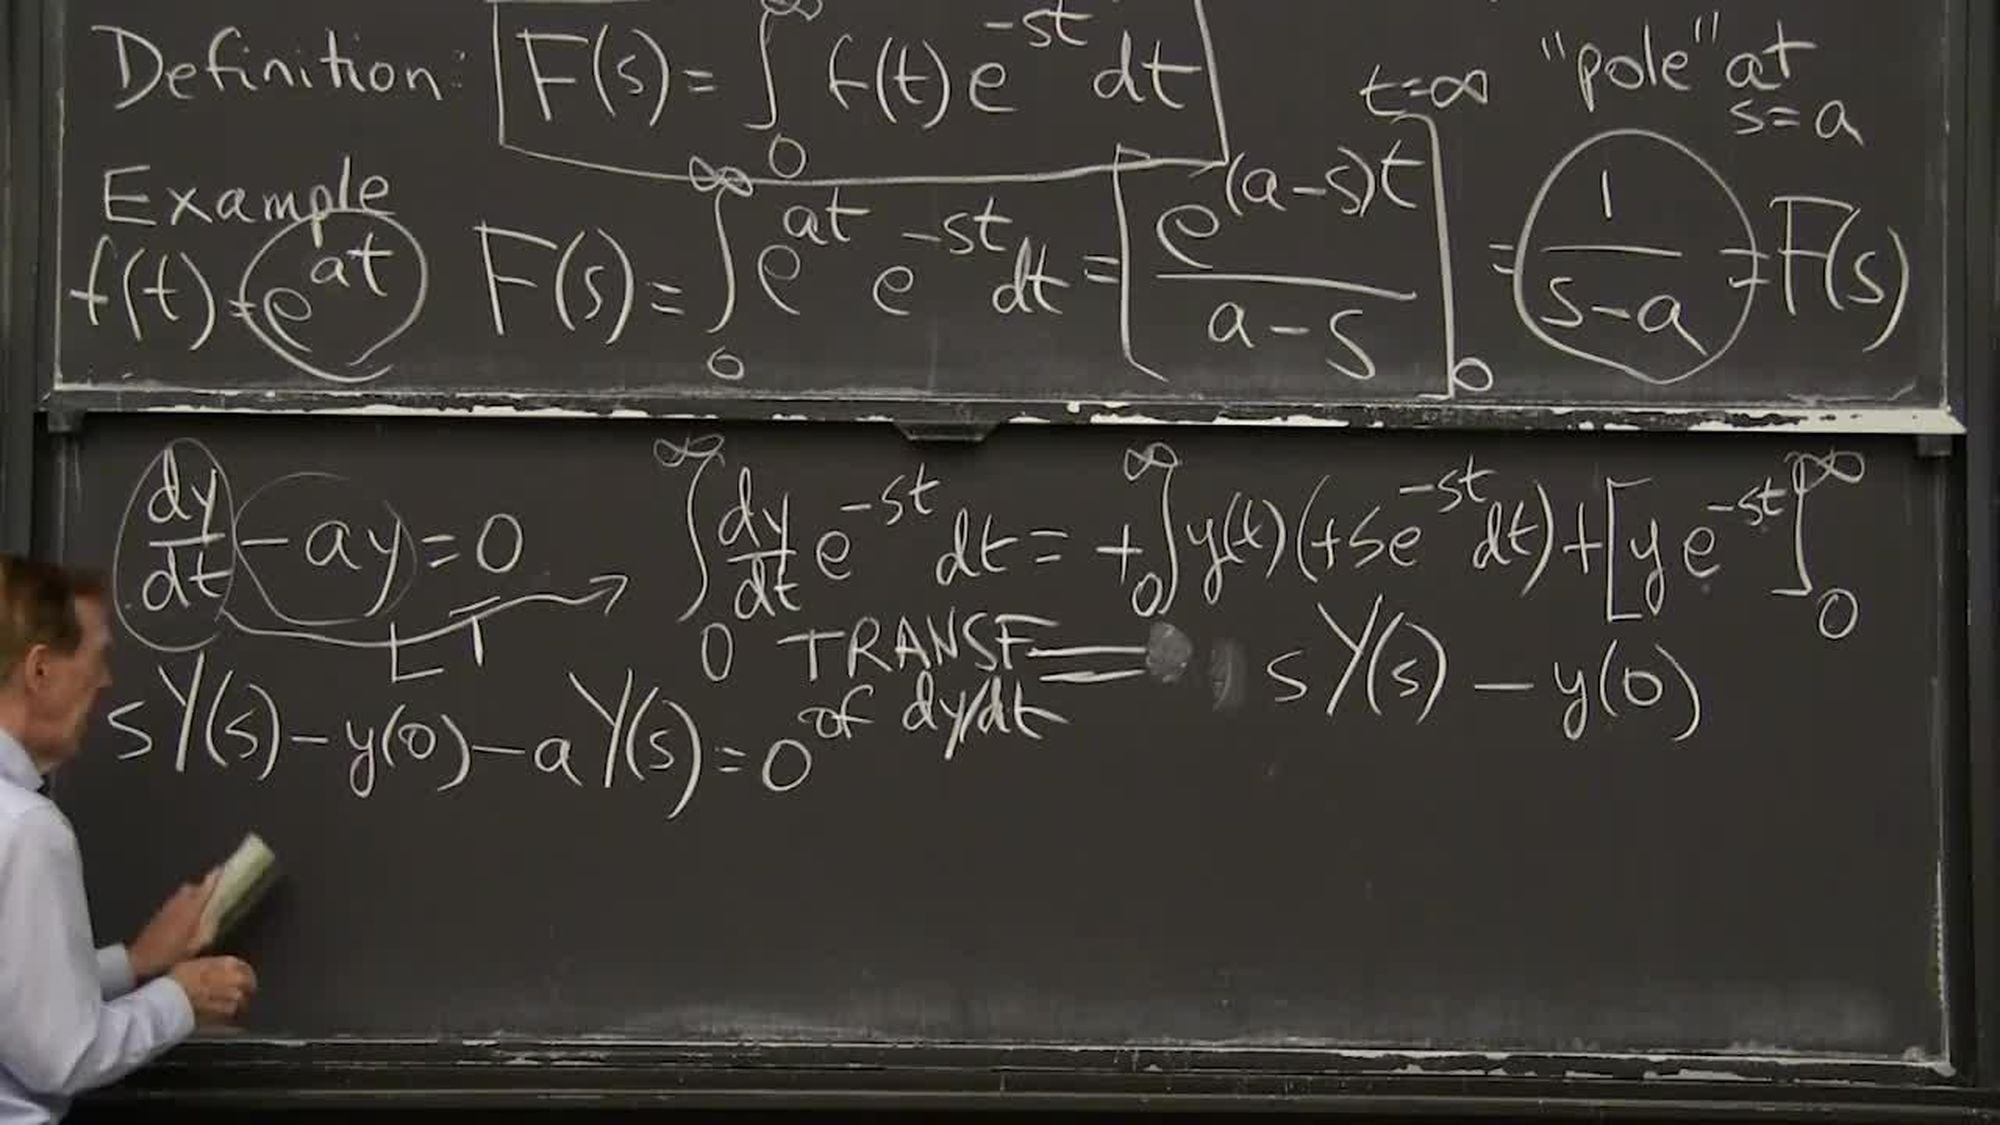 Definition: F(s) = ∫₀^∞ f(t) e^{-st} dt
"pole" at s = a
Example
f(t) = e^{at} F(s) = ∫₀^∞ e^{at} e^{-st} dt = [e^{(a-s)t} / (a-s)]₀^{t=∞} = 1/(s-a) = F(s)
dy/dt - ay = 0 ∫₀^∞ dy/dt e^{-st} dt = +∫₀^∞ y(t)(+se^{-st} dt) + [y e^{-st}]₀^∞
LT TRANSF of dy/dt = sY(s) - y(0)
sY(s) - y(0) - aY(s) = 0